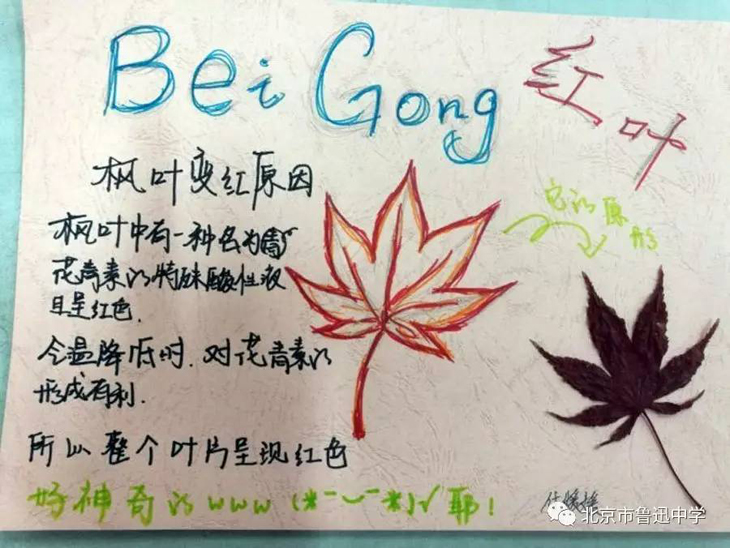 Bei Gong 红叶
枫叶变红原因
枫叶中有一种名为
花青素的特殊酸性液
且呈红色.
令温降低时.对花青素的
形成有利.
所以整个叶片呈现红色
好神奇的www(*˘︶˘*)√耶!
它的原
形
北京市鲁迅中学